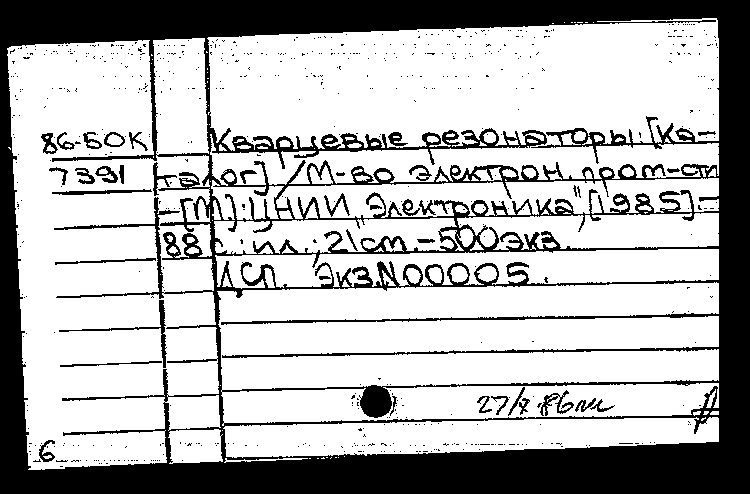 86-БОК Кварцевые резонаторы: [Ка-
7391 талог] / М-во электрон. пром-сти
–[М]: ЦНИИ „Электроника", [1985].–
88 с.: ил.; 21 см. – 500 экз.
ДСП. Экз. N00005.
6